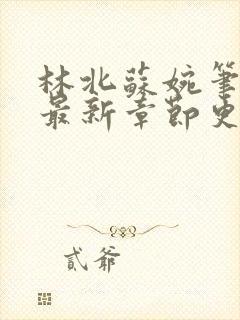 林北蘇婉筆
最新章節史
貳爺